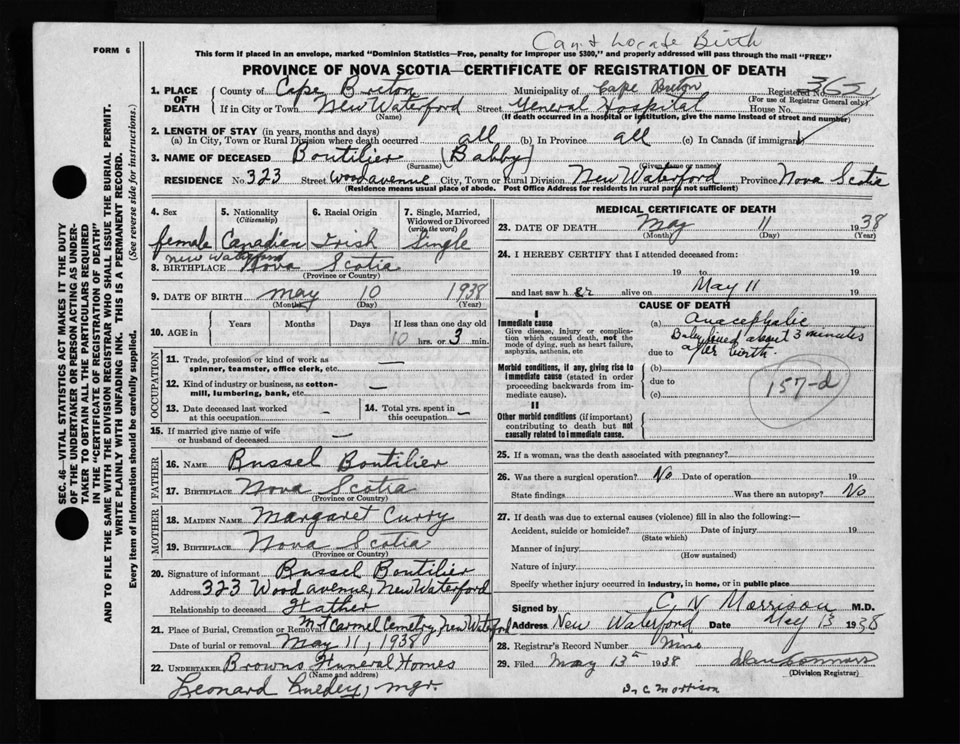 Can't Locate Birth
FORM 6
This form if placed in an envelope, marked "Dominion Statistics—Free, penalty for improper use $300," and properly addressed will pass through the mail "FREE"
PROVINCE OF NOVA SCOTIA—CERTIFICATE OF REGISTRATION OF DEATH
1. PLACE OF DEATH County of Cape Breton Municipality of Cape Breton Registered No. 365
(For use of Registrar General only)
If in City or Town New Waterford Street General Hospital House No.
(Name) (If death occurred in a hospital or institution, give the name instead of street and number)
2. LENGTH OF STAY (in years, months and days)
(a) In City, Town or Rural Division where death occurred all (b) In Province all (c) In Canada (if immigrant)
3. NAME OF DECEASED Boutilier (Babby)
(Surname) (Given name or names)
RESIDENCE No. 323 Street Wood avenue City, Town or Rural Division New Waterford Province Nova Scotia
(Residence means usual place of abode. Post Office Address for residents in rural parts not sufficient)
SEC. 46—VITAL STATISTICS ACT MAKES IT THE DUTY
OF THE UNDERTAKER OR PERSON ACTING AS UNDER-
TAKER TO OBTAIN ALL THE PARTICULARS REQUIRED
IN THE "CERTIFICATE OF REGISTRATION OF DEATH"
AND TO FILE THE SAME WITH THE DIVISION REGISTRAR WHO SHALL ISSUE THE BURIAL PERMIT.
WRITE PLAINLY WITH UNFADING INK. THIS IS A PERMANENT RECORD.
Every item of information should be carefully supplied. (See reverse side for instructions.)
4. Sex 5. Nationality (Citizenship) 6. Racial Origin 7. Single, Married, Widowed or Divorced (write the word)
female Canadian Irish Single
New Waterford
8. BIRTHPLACE Nova Scotia
(Province or Country)
9. DATE OF BIRTH May 10 1938
(Month) (Day) (Year)
10. AGE in Years Months Days If less than one day old
10 hrs. or 3 min.
OCCUPATION
11. Trade, profession or kind of work as spinner, teamster, office clerk, etc. —
12. Kind of industry or business, as cotton-mill, lumbering, bank, etc. —
13. Date deceased last worked at this occupation — 14. Total yrs. spent in this occupation —
15. If married give name of wife or husband of deceased —
FATHER
16. NAME Russel Boutilier
17. BIRTHPLACE Nova Scotia
(Province or Country)
MOTHER
18. MAIDEN NAME Margaret Curry
19. BIRTHPLACE Nova Scotia
(Province or Country)
20. Signature of informant Russel Boutilier
Address 323 Wood avenue, New Waterford
Relationship to deceased Father
21. Place of Burial, Cremation or Removal Mt Carmel Cemetry New Waterford
Date of burial or removal May 11, 1938
22. UNDERTAKER Browns Funeral Homes
(Name and address)
Leonard mgr.
MEDICAL CERTIFICATE OF DEATH
23. DATE OF DEATH May 11 1938
(Month) (Day) (Year)
24. I HEREBY CERTIFY that I attended deceased from
19 to 19
and last saw her alive on May 11 19
CAUSE OF DEATH
I
Immediate cause (a) Anacephalic
Give disease, injury or complication which caused death, not the mode of dying, such as heart failure, asphyxia, asthenia, etc
Baby lived about 3 minutes
due to after birth.
Morbid conditions, if any, giving rise to immediate cause (stated in order proceeding backwards from immediate cause).
(b)
due to
(c)
157-d
II
Other morbid conditions (if important) contributing to death but not causally related to immediate cause.
25. If a woman, was the death associated with pregnancy?
26. Was there a surgical operation? No Date of operation 19
State findings Was there an autopsy? No
27. If death was due to external causes (violence) fill in also the following:—
Accident, suicide or homicide? Date of injury 19
(State which)
Manner of injury
(How sustained)
Nature of injury
Specify whether injury occurred in industry, in home, or in public place
Signed by C N Morrison M.D.
Address New Waterford Date May 13 1938
28. Registrar's Record Number Nine
29. Filed May 13th 1938
(Division Registrar)
Dr C. Morrison